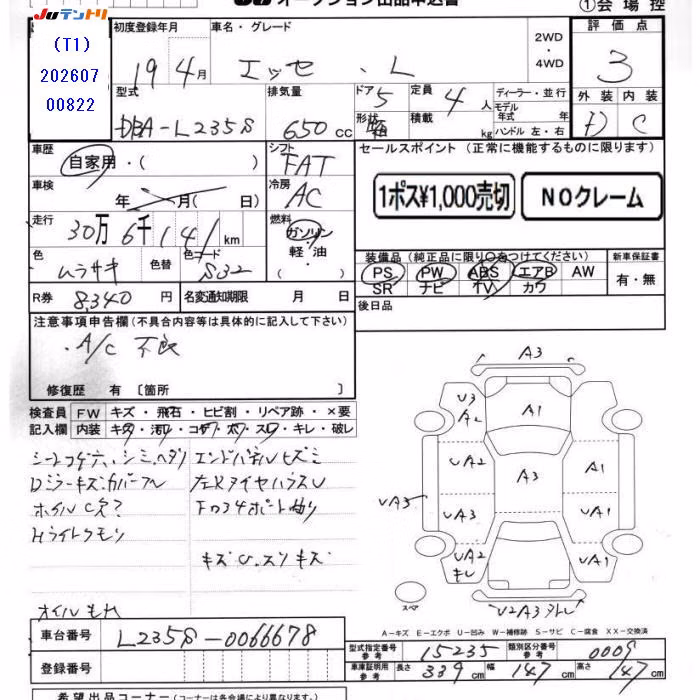 JUテントリ
オークション出品申込書
①会場控
(T1)
202607
00822
初度登録年月
19年 4月
車名・グレード
エッセ ・ L
2WD
・
4WD
評価点
3
外装 内装
D C
型式
DBA-L235S
排気量
650 cc
ドア 5
形状 箱
定員 4 人
積載 kg
ディーラー・並行
モデル
年式 年
ハンドル 左・右
車歴
自家用・( )
シフト
FAT
車検
年 月( 日)
冷房
AC
走行
30万 6千 141 km
燃料
ガソリン
・
軽油
色
ムラサキ
色替
色コード
S32
R券
8,340 円
名変通知期限 月 日
セールスポイント(正常に機能するものに限ります)
1ポス¥1,000売切
NOクレーム
装備品(純正品に限り○をつけてください)
PS PW ABS エアB AW
SR ナビ TV カワ
新車保証書
有・無
後日品
注意事項申告欄(不具合内容等は具体的に記入して下さい)
・A/C 不良
修復歴 有〔箇所 〕
検査員 FW キズ・飛石・ヒビ割・リペア跡・×要
記入欄 内装 キズ・汚レ・コゲ・穴・スレ・キレ・破レ
シートコゲ穴、シミ、ヘタリ
エンドパネルヒズミ
Dミラーキズ、カバーフレ
ホイルC欠ク
Hライトクモリ
キズU、スリキズ
オイルもれ
A3
U3
A2
A1
UA2
A3
A1
UA5
UA3
UA1
UA2
キレ
UA1
U2A3ヌレ
スペア
A-キズ E-エクボ U-凹み W-補修跡 S-サビ C-腐食 XX-交換済
車台番号
L235S-0066678
登録番号
型式指定番号
参考
15235
類別区分番号
参考
0009
車庫証明用
参考
長さ 339 cm 幅 147 cm 高さ 147 cm
希望出品コーナー(コーナーは各会場により異なります。)